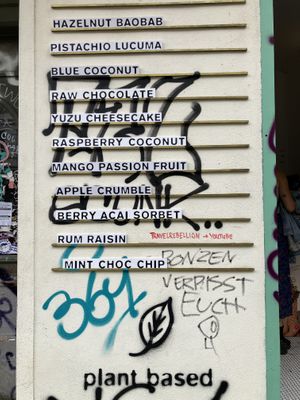 HAZELNUT BAOBAB
PISTACHIO LUCUMA
BLUE COCONUT
RAW CHOCOLATE
YUZU CHEESECAKE
RASPBERRY COCONUT
MANGO PASSION FRUIT
APPLE CRUMBLE
BERRY ACAI SORBET
RUM RAISIN
TRAVELREBELLION → YOUTUBE
MINT CHOC CHIP
BONZEN
VERPISST
EUCH
361
plant based